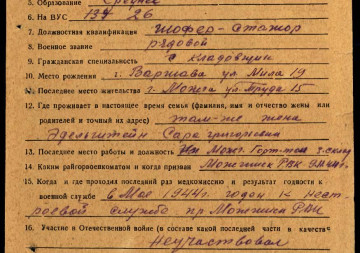 5. Образование Среднее
6. На ВУС 134 26
7. Должностная квалификация шофер-стажор
8. Военное звание рядовой
9. Гражданская специальность кладовщик
10. Место рождения г. Варшава ул. Мила 19
11. Последнее место жительства г. Можга ул. Труда 15
12. Где проживает в настоящее время семья (фамилия, имя и отчество жены или
родителей и точный их адрес) там-же жена
Эдельштейн Сара Григорьевна
13. Последнее место работы и должность Можг. зав. склад
14. Каким райгорвоенкоматом и когда призван Можгинск РВК
15. Когда и где проходил последний раз медкомиссию и результат годности к
военной службе 6 Мая 1944г. годен к нест-
роевой службе при Можгинск РВК
16. Участие в Отечественной войне (в составе какой последней части и качестве
неучаствовал